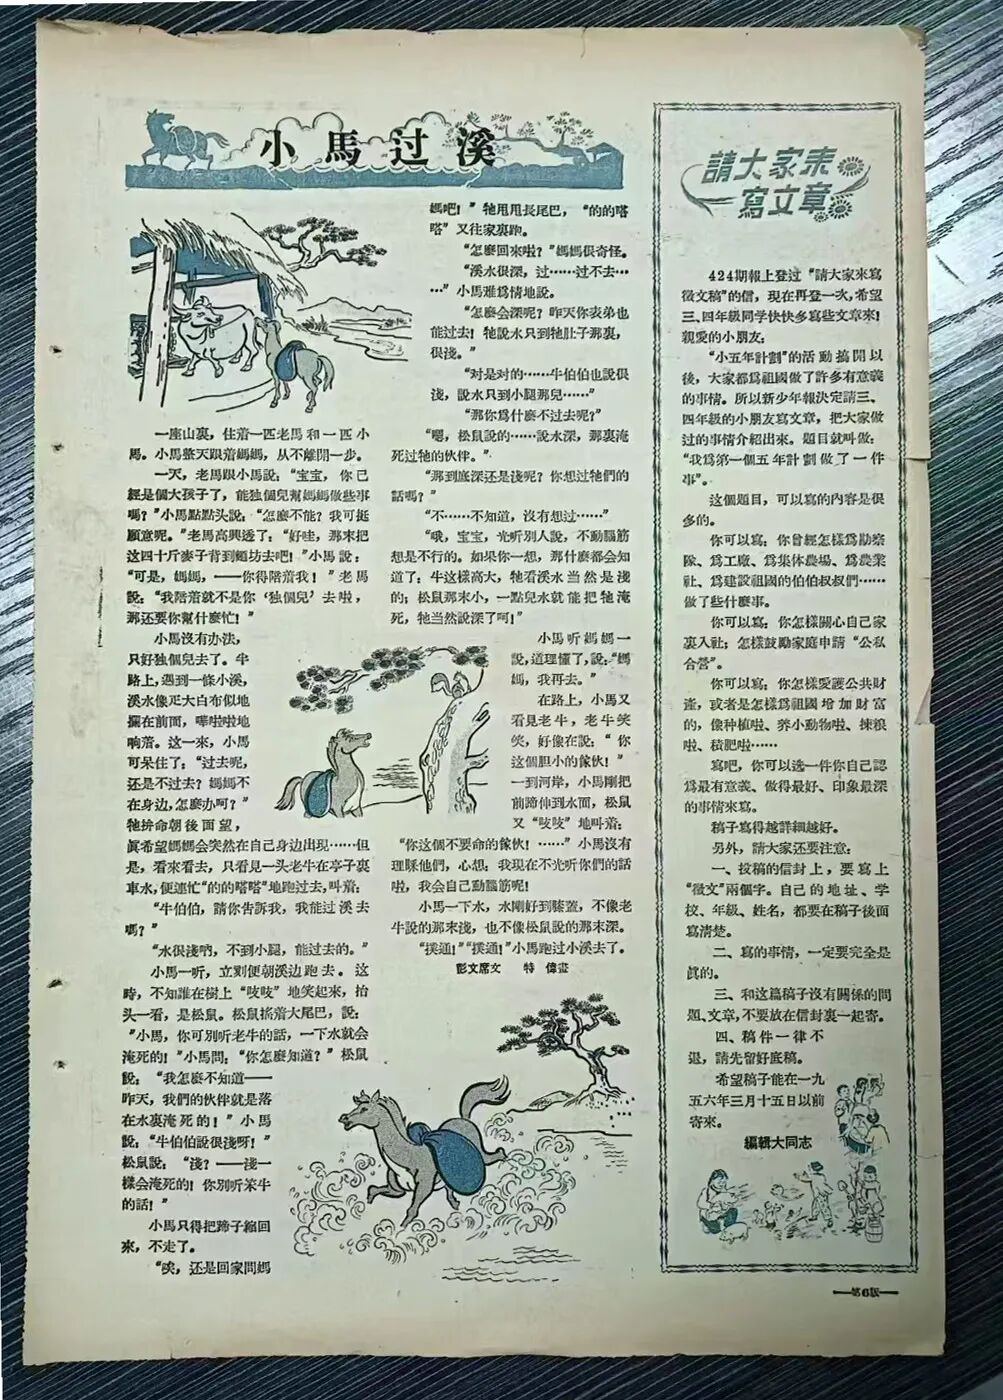 小馬过溪
一座山裏，住着一匹老馬和一匹小
馬。小馬整天跟着媽媽，从不離開一步。
一天，老馬跟小馬説：“宝宝，你已
經是個大孩子了，能独個兒幫媽媽做些事
嗎？”小馬點點头説：“怎麼不能？我可挺
願意呢。”老馬高興透了：“好哇，那末把
这四十斤麥子背到麵坊去吧！”小馬説：
“可是，媽媽，——你得陪着我！”老馬
説：“我陪着就不是你‘独個兒’去啦，
那还要你幫什麼忙！”
小馬沒有办法，
只好独個兒去了。半
路上，遇到一條小溪，
溪水像疋大白布似地
攔在前面，嘩啦啦地
响着。这一來，小馬
可呆住了：“过去呢，
还是不过去？媽媽不
在身边，怎麼办呵？”
牠拚命朝後面望，
眞希望媽媽会突然在自己身边出現……但
是，看來看去，只看見一头老牛在亭子裏
車水，便連忙“的的嗒嗒”地跑过去，叫着：
“牛伯伯，請你告訴我，我能过溪去
嗎？”
“水很淺吶，不到小腿，能过去的。”
小馬一听，立刻便朝溪边跑去。这
時，不知誰在樹上“吱吱”地笑起來，抬
头一看，是松鼠。松鼠搖着大尾巴，説：
“小馬，你可別听老牛的話，一下水就会
淹死的！”小馬問：“你怎麼知道？”松鼠
説：“我怎麼不知道——
昨天，我們的伙伴就是落
在水裏淹死的！”小馬
説：“牛伯伯説很淺呀！”
松鼠説：“淺？——淺一
樣会淹死的！你別听笨牛
的話！”
小馬只得把蹄子縮回
來，不走了。
“唉，还是回家問媽
媽吧！”牠甩甩長尾巴，“的的嗒
嗒”又往家裏跑。
“怎麼回來啦？”媽媽很奇怪。
“溪水很深，过……过不去…
…”小馬难爲情地説。
“怎麼会深呢？昨天你表弟也
能过去！牠説水只到牠肚子那裏，
很淺。”
“对是对的……牛伯伯也説很
淺，説水只到小腿那兒……”
“那你爲什麼不过去呢？”
“嗯，松鼠説的……説水深，那裏淹
死过牠的伙伴。”
“那到底深还是淺呢？你想过牠們的
話嗎？”
“不……不知道，沒有想过……”
“哦，宝宝，光听別人説，不動腦筋
想是不行的。如果你一想，那什麼都会知
道了：牛这樣高大，牠看溪水当然是淺
的；松鼠那末小，一點兒水就能把牠淹
死，牠当然説深了呵！”
小馬听媽媽一
説，道理懂了，説：“媽
媽，我再去。”
在路上，小馬又
看見老牛，老牛笑
笑，好像在説：“你
这個胆小的傢伙！”
一到河岸，小馬剛把
前蹄伸到水面，松鼠
又“吱吱”地叫着：
“你这個不要命的傢伙！……”小馬沒有
理睬他們，心想：我現在不光听你們的話
啦，我会自己動腦筋呢！
小馬一下水，水剛好到膝蓋，不像老
牛説的那末淺，也不像松鼠説的那末深。
“撲通！”“撲通！”小馬跑过小溪去了。
彭文席文　特偉畫
請大家來
寫文章
424期報上登过“請大家來寫
徵文稿”的信，現在再登一次，希望
三、四年級同学快快多寫些文章來！
親愛的小朋友：
“小五年計劃”的活動搞開以
後，大家都爲祖國做了許多有意義
的事情。所以新少年報決定請三、
四年級的小朋友寫文章，把大家做
过的事情介紹出來。題目就叫做：
“我爲第一個五年計劃做了一件
事”。
这個題目，可以寫的內容是很
多的。
你可以寫：你曾經怎樣爲勘察
隊、爲工廠、爲集体農場、爲農業
社、爲建設祖國的伯伯叔叔們……
做了些什麼事。
你可以寫：你怎樣關心自己家
裏入社；怎樣鼓勵家庭申請“公私
合營”。
你可以寫：你怎樣愛護公共財
產，或者是怎樣爲祖國增加財富
的，像种植啦、养小動物啦、揀粮
啦、積肥啦……
寫吧，你可以选一件你自己認
爲最有意義、做得最好、印象最深
的事情來寫。
稿子寫得越詳細越好。
另外，請大家还要注意：
一、投稿的信封上，要寫上
“徵文”兩個字。自己的地址、学
校、年級、姓名，都要在稿子後面
寫清楚。
二、寫的事情，一定要完全是
眞的。
三、和这篇稿子沒有關係的問
題、文章，不要放在信封裏一起寄。
四、稿件一律不
退，請先留好底稿。
希望稿子能在一九
五六年三月十五日以前
寄來。
編輯大同志
第6版